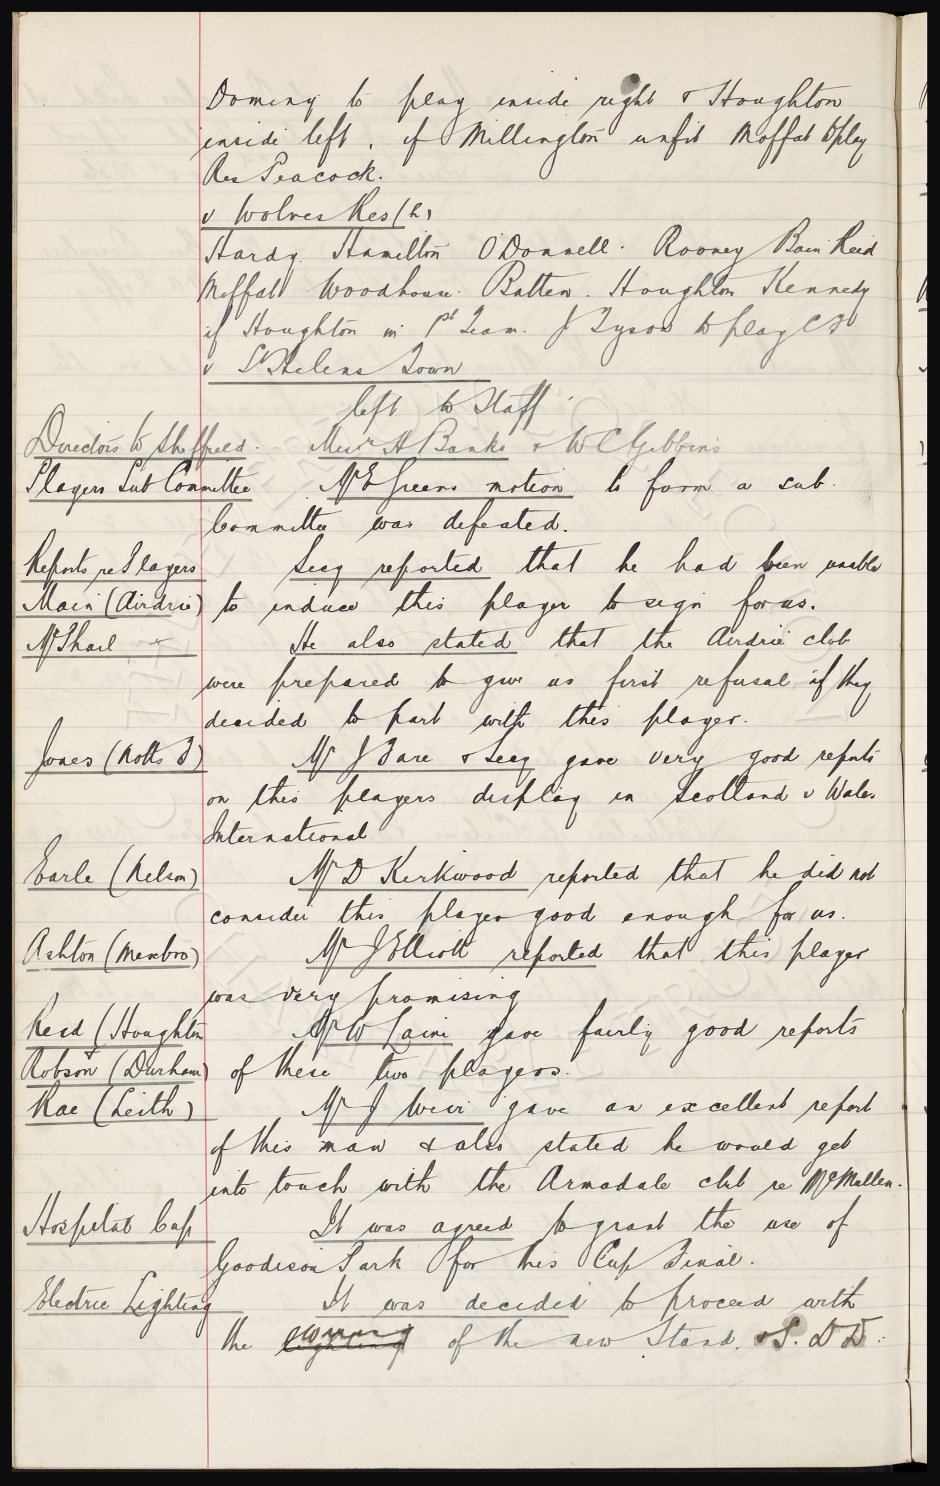 Dominy to play inside right & Houghton
inside left, if Millington unfit Moffat to play
Res Peacock.
v Wolves Res (h)
Hardy Hamilton O'Donnell. Rooney Bain Reid
Moffat Woodhouse. Batten. Houghton Kennedy
if Houghton in 1st Team. J Tyson to play CF
v St Helens Town
left to Staff
Directors to Sheffield. Messrs H Banks & W C Gibbins
Players Sub Committee Mr E Greens motion to form a sub.
Committee was defeated.
Reports re Players Secy reported that he had been unable
Main (Airdrie) to induce this player to sign for us.
McPhail " He also stated that the Airdrie club
were prepared to give us first refusal if they
decided to part with this player.
Jones (Notts F) Mr J Fare & Secy gave very good reports
on this players display in Scotland v Wales
International
Earle (Nelson) Mr D Kirkwood reported that he did not
consider this player good enough for us.
Ashton (Mexbro) Mr J Elliott reported that this player
was very promising
Reid (Houghton Mr W Caine gave fairly good reports
& Robson (Durham) of these two players.
Rae (Leith) Mr J Weir gave an excellent report
of this man & also stated he would get
into touch with the Armadale club re McMullen.
Hospital Cup It was agreed to grant the use of
Goodison Park for this Cup Final.
Electric Lighting It was decided to proceed with
the wiring lighting of the new Stand. & S. D D.